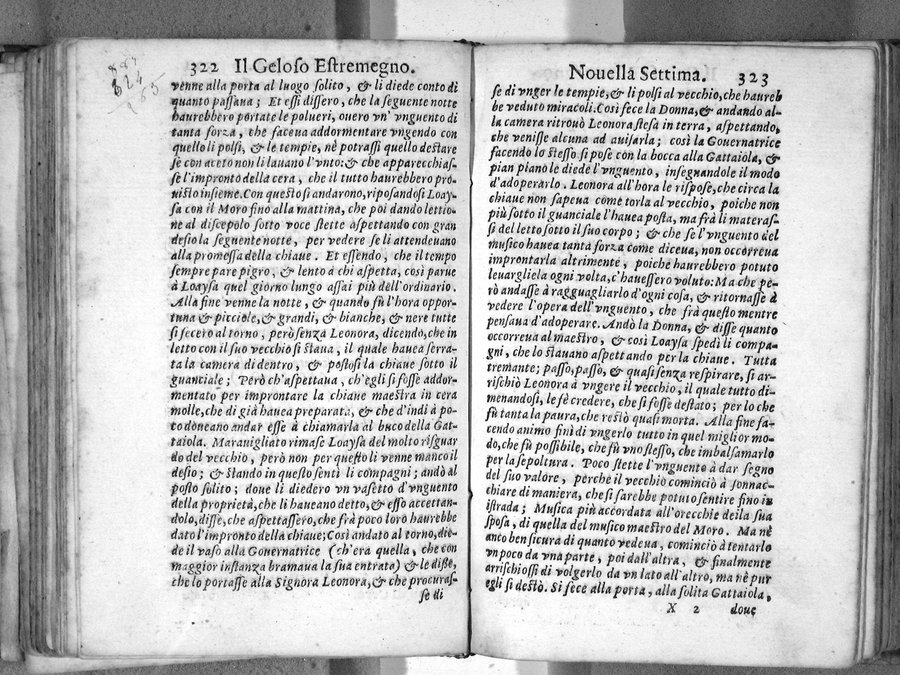 322 Il Geloso Estremegno.
venne alla porta al luogo solito, & li diede conto di
quanto passaua; Et essi dissero, che la seguente notte
haurebbero portate le polueri, ouero vn' vnguento di
tanta forza, che faceua addormentare vngendo con
quello li polsi, & le tempie, nè potrassi quello destare
se con aceto non li lauano l'vnto:& che apparecchias-
se l'impronto della cera, che il tutto haurebbero pro-
uisto insieme. Con questo si andarono, riposandosi Loay-
sa con il Moro fino alla mattina, che poi dando lettio-
ne al discepolo sotto voce stette aspettando con gran
desio la seguente notte, per vedere se li attendeuano
alla promessa della chiaue. Et essendo, che il tempo
sempre pare pigro, & lento à chi aspetta, così parue
à Loaysa quel giorno lungo assai più dell'ordinario.
Alla fine venne la notte, & quando fù l'hora oppor-
tuna & picciole, & grandi, & bianche, & nere tutte
si fecero al torno, però senza Leonora, dicendo, che in
letto con il suo vecchio si staua, il quale hauea serra-
ta la camera di dentro, & postosi la chiaue sotto il
guanciale; Però ch'aspettaua, ch'egli si fosse addor-
mentato per improntare la chiaue maestra in cera
molle, che di già hauea preparata, & che d'indi à po-
to doueano andar esse à chiamarla al buco della Gat-
taiola. Marauigliato rimase Loaysa del molto risguar
do del vecchio, però non per questo li venne manco il
desio; & stando in questo sentì li compagni; andò al
posto solito; doue li diedero vn vasetto d'vnguento
della proprietà, che li haueano detto, & esso accettan-
dolo, disse, che aspettassero, che frà poco loro haurebbe
dato l'impronto della chiaue; Così andato al torno, die-
de il vaso alla Gouernatrice (ch'era quella, che con
maggior instanza bramaua la sua entrata) & le disse,
che lo portasse alla Signora Leonora, & che procuras-
se di
Nouella Settima. 323
se di vnger le tempie, & li polsi al vecchio, che haureb
be veduto miracoli. Così fece la Donna, & andando al-
la camera ritrouò Leonora stesa in terra, aspettando,
che venisse alcuna ad auisarla; così la Gouernatrice
facendo lo stesso si pose con la bocca alla Gattaiola, &
pian piano le diede l'vnguento, insegnandole il modo
d'adoperarlo. Leonora all'hora le rispose, che circa la
chiaue non sapeua come torla al vecchio, poiche non
più sotto il guanciale l'hauea posta, ma frà li materas-
si del letto sotto il suo corpo; & che se l'vnguento del
musico hauea tanta forza come diceua, non occorreua
improntarla altrimente, poiche haurebbero potuto
leuargliela ogni volta, c'hauessero voluto: Ma che pe-
rò andasse à ragguagliarlo d'ogni cosa, & ritornasse à
vedere l'opera dell'vnguento, che frà questo mentre
pensaua d'adoperare. Andò la Donna, & disse quanto
occorreua al maestro, & così Loaysa spedì li compa-
gni, che lo stauano aspettando per la chiaue. Tutta
tremante; passo, passo, & quasi senza respirare, si ar-
rischiò Leonora à vngere il vecchio, il quale tutto di-
menandosi, le fè credere, che si fosse destato; per lo che
fù tanta la paura, che restò quasi morta. Alla fine fa-
cendo animo finì di vngerlo tutto in quel miglior mo-
do, che fù possibile, che fù vno stesso, che imbalsamarlo
per la sepoltura. Poco stette l'vnguento à dar segno
del suo valore, perche il vecchio cominciò à sonnac-
chiare di maniera, che si sarebbe potuto sentire fino in
istrada; Musica più accordata all'orecchie della sua
sposa, di quella del musico maestro del Moro. Ma nè
anco ben sicura di quanto vedeua, cominciò à tentarlo
vn poco da vna parte, poi dall'altra, & finalmente
arrischiossi di volgerlo da vn lato all'altro, ma nè pur
egli si destò. Si fece alla porta, alla solita Gattaiola,
X 2 doue